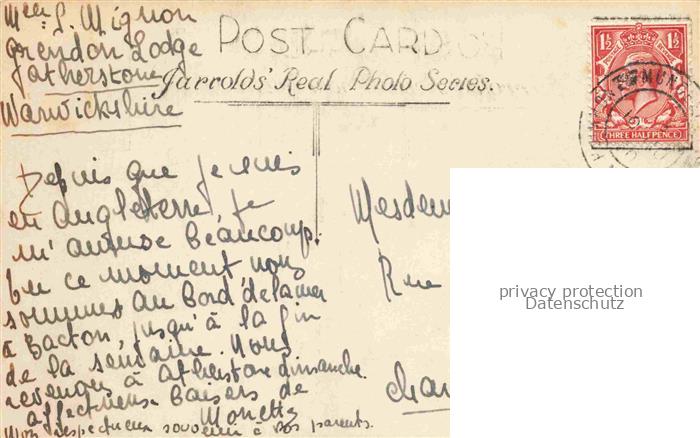 Melle G. Mignon
Grendon Lodge
Atherstone
Warwickshire
POST CARD
Jarrolds' Real Photo Series.
1½ 1½
THREE HALFPENCE
Depuis que je suis
en Angleterre, je
m'amuse beaucoup.
En ce moment nous
sommes au bord de la mer
à Bacton, jusqu'à la fin
de la semaine. Nous
revenons à Atherstone dimanche.
affectueux baisers de
Monette
Mon respectueux souvenir à vos parents.
Rue
privacy protection
Datenschutz